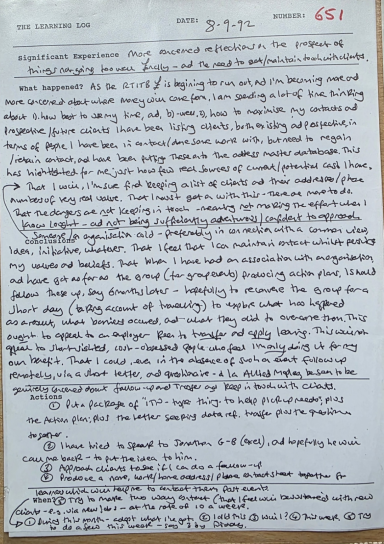 THE LEARNING LOG DATE: 8-9-92 NUMBER: 651
Significant Experience More concerned reflections on the prospect of
things not going too well £ncially - and the need to get/maintain touch with clients.
What happened? As the RTITB £ is begining to run out and I'm becoming more and
more concerned about where money will come from, I am spending a lot of time thinking
about 1), how best to use my time, and, b) 3), how to maximise my contacts and
prospective/future clients I have been listing clients, both existing and prospective, in
terms of people I have been in contact/done some work with, but need to regain
/retain contact, and have been putting these onto the address master database. This
has highlighted for me just how few real sources of current/potential cash I have.
That I will, I'm sure find keeping a list of clients and their addresses/phone
numbers of very real value. That I must get on with this - there are more to do.
That the dangers are not keeping in touch - meaning not making the effort when I
know I ought - and not being sufficiently adventurous/confident to approach
Conclusions organisation and - preferably in connection with a common view,
idea, initiative, whatever. That I feel that I can maintain contact whilst
my values and beliefs. That when I have had an association with an organisation
and have got as far as the group (for group events) producing action plans, I should
follow these up, say 6 months later - hopefully to reconvene the group for a
short day (taking account of travelling) to explore what has happened
as a result, what barriers occured, and what they did to overcome them. This
ought to appeal to an employer keen to transfer and apply learning. This will not
appeal to short-sighted, cost-obsessed people who feel I'm only doing it for my
own benefit. That I could, even in the absence of such an event follow up
remotely, via a short letter, and questionnaire - a la Allied Medley be seen to be
genuinely concerned about follow-up and Transfer and keep in touch with clients.
Actions ① Put a package of "ITN" - type thing, to help pick up needs, plus
the Action plan, plus the letter seeking data ref. transfer plus the questions
together.
② I have tried to speak to Jonathan G-B (Excel), and hopefully he will
call me back - to put the idea to him.
③ Approach clients to see if I can do a follow-up
④ Produce a name, work/home address/phone contact sheet together for
learners who will require to contact them post event.
When? ⑤ Try to make two way contact (that I feel will be sustained) with new
clients - e.g. via new jobs - at the rate of 10 a week.
① During this month - adapt what I've got. ② I did this ③ Will I? ④ This week ⑤ Try
to do a few this week - say 3 by Friday.